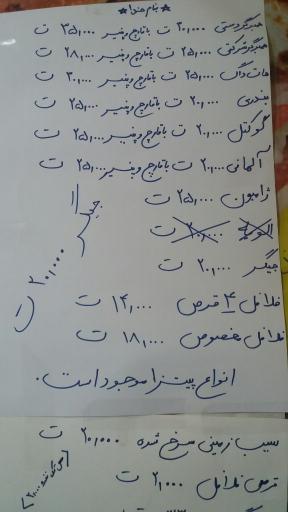 ★ بنام خدا ★
همبرگر دستی ۲۰,۰۰۰ ت با قارچ و پنیر ۳۵,۰۰۰ ت
همبرگر شرکتی ۲۵,۰۰۰ ت با قارچ و پنیر ۲۸,۰۰۰ ت
هات داگ ۲۵,۰۰۰ ت با قارچ و پنیر ۳۰,۰۰۰ ت
بندری ۲۰,۰۰۰ ت با قارچ و پنیر ۲۵,۰۰۰ ت
کوکتل ۲۰,۰۰۰ ت با قارچ و پنیر ۲۵,۰۰۰ ت
آلمانی ۲۰,۰۰۰ ت با قارچ و پنیر ۲۵,۰۰۰ ت
ژامبون ۲۵,۰۰۰ ت
۲۰,۰۰۰ ت
جیگر ۲۰,۰۰۰ ت
۲۰,۰۰۰ ت
فلافل ۴ قرص ۱۴,۰۰۰ ت
فلافل مخصوص ۱۸,۰۰۰ ت
انواع پیتزا موجود است.
سیب زمینی سرخ شده ۲۰,۰۰۰ ت
قرص فلافل ۲,۰۰۰ ت